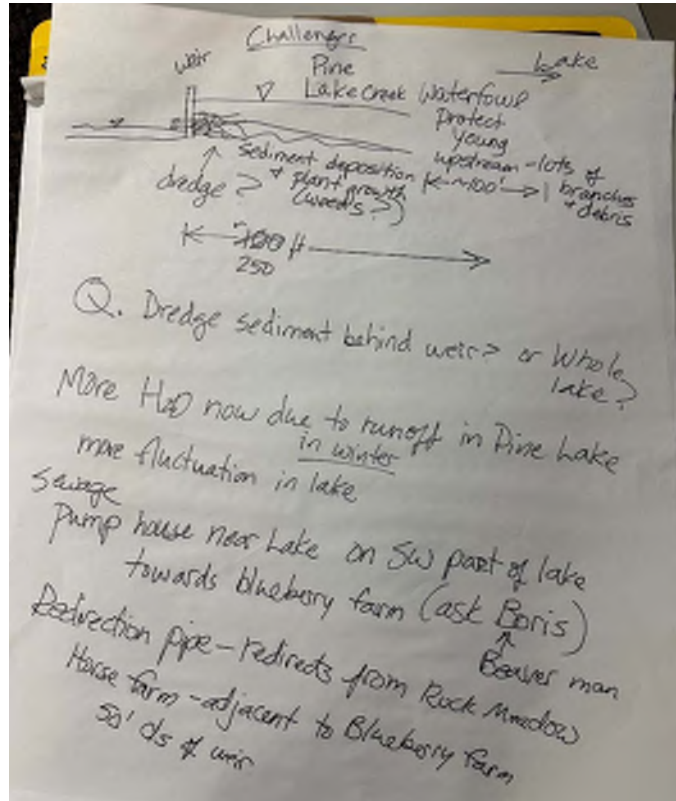 Challenges
weir
Pine
Lake Creek
Lake
Waterfowl
protect
young
upstream - lots of
branches
+ debris
sediment deposition
+ plant growth
(weeds?)
dredge?
~100'
250 ft
Q. Dredge sediment behind weir? or Whole
lake?
More H2O now due to runoff in Pine Lake
in winter
more fluctuation in lake
Sewage
Pump house near Lake on SW part of lake
towards blueberry farm (ask Boris)
Beaver man
Redirection pipe - redirects from Rock Meadow
Horse farm - adjacent to Blueberry farm
50' ds of weir